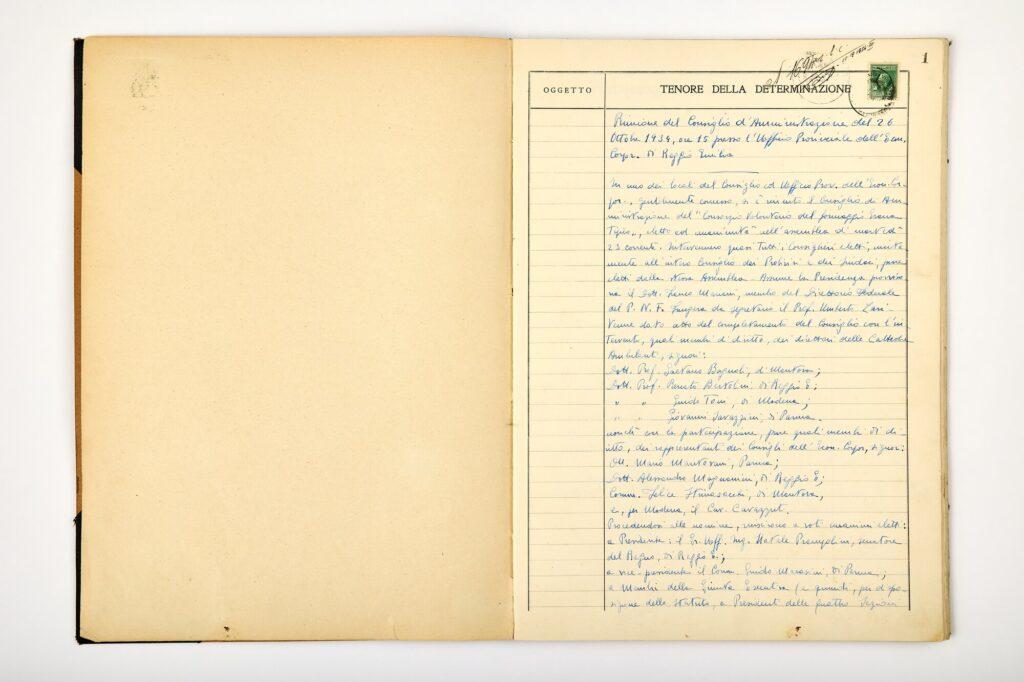 1
OGGETTO
TENORE DELLA DETERMINAZIONE
Riunione del Consiglio d'Amministrazione del 26
Ottobre 1934, ore 15 presso l'Ufficio Provinciale dell'Econ.
Corpor. di Reggio Emilia
In uno dei locali del Consiglio ed Ufficio Prov. dell'Econ. Cor-
por., gentilmente concesso, si è riunito il Consiglio di Am-
ministrazione del "Consorzio Volontario del formaggio Grana
Tipico", eletto ad unanimità nell'assemblea di martedì
23 corrente. Intervennero quasi tutti i Consiglieri eletti, unita-
mente all'intero Consiglio dei Probiviri e dei Sindaci, pure
eletti dalla stessa Assemblea. Assume la Presidenza provviso-
ria il Dott. Mancini, membro del Direttorio Federale
del P. N. F. Funge da segretario il Prof. Umberto
Venne dato atto del completamento del Consiglio con l'in-
tervento, quali membri di diritto, dei direttori delle Cattedre
Ambulanti, signori:
Dott. Prof. Gaetano Bagnoli, di Mantova;
Dott. Prof. Renato Bertolini di Reggio E.;
" " Guido Toni, di Modena;
" " Giovanni Savazzini, di Parma.
nonchè con la partecipazione, pure quali membri di di-
ritto, dei rappresentanti dei Consigli dell'Econ. Corpor., signori:
Dott. Mario Mantovani, Parma;
Dott. Alessandro Magnanini, di Reggio E;
Comm. Felice di Mantova,
e, per Modena, il Cav. Cavazzuti.
Procedendosi alle nomine, riuscirono a voti unanimi eletti:
a Presidente: il Gr. Uff. Ing. Natale Prampolini, senatore
del Regno, di Reggio E.;
a vice-presidente: il Comm. Guido di Parma;
a Membri della Giunta Esecutiva (e quindi, per dispo-
sizione dello Statuto, a Presidenti delle quattro Sezioni